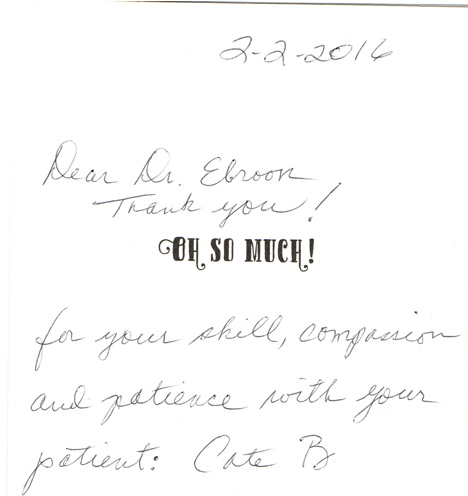 2-2-2016
Dear Dr. Ebroon
Thank you!
OH SO MUCH!
for your skill, compassion
and patience with your
patient: Cate B